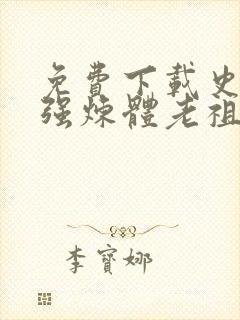 免費下載史
強煉體老祖
李寶娜